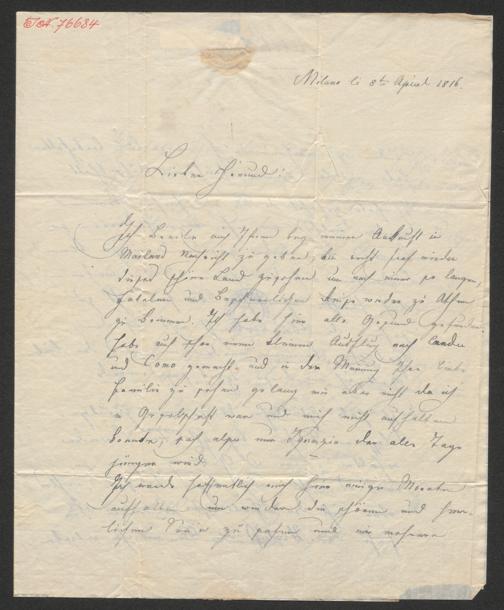 76684
Milano li 8te April 1816.
Lieber Freund!
Ich beeile mich Ihnen bey meiner Ankunft in
Mailand Nachricht zu geben,
dieses schöne Land zu sehen um nach einer so langen,
fatalen und beschwerlichen Reise wieder zu Athem
zu kommen. Ich habe hier alle gesund gefunden.
habe auch schon einen kleinen Ausflug nach
und Como gemacht, und in der Meinung Ihre liebe
Familie zu sehen gelang mir aber nicht da ich
in Gesellschaft war und mich nicht aufhalten
konnte, die alle Tage
jünger wird.
Ich werde hoffentlich noch hier einige Monate
um wieder die schönen und
zu sehen und mir mehrere